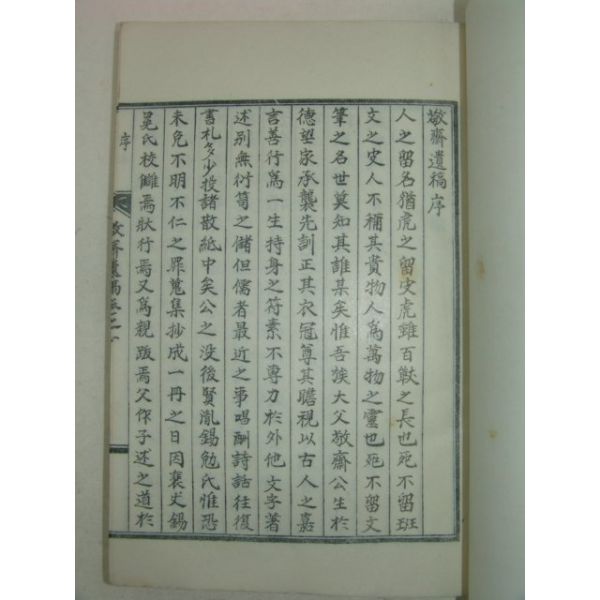 敬齋遺稿序
人之留名猶虎之留史虎雖百獸之長也死不留班
文之史人不稱其貴物人爲萬物之靈也死不留文
筆之名世莫知其誰某矣惟吾族大父敬齋公生於
德望家承襲先訓正其衣冠尊其瞻視以古人之嘉
言善行爲一生持身之符素不專力於外他文字著
述別無衍笥之儲但儒者最近之事唱酬詩話往復
書札多少投諸散紙中矣公之没後賢胤錫勉氏惟恐
未免不明不仁之罪蒐集抄成一冊之日因襄丈錫
冕氏校讎焉狀行焉又爲親跋焉父作子述之道於
序
敬齋遺稿